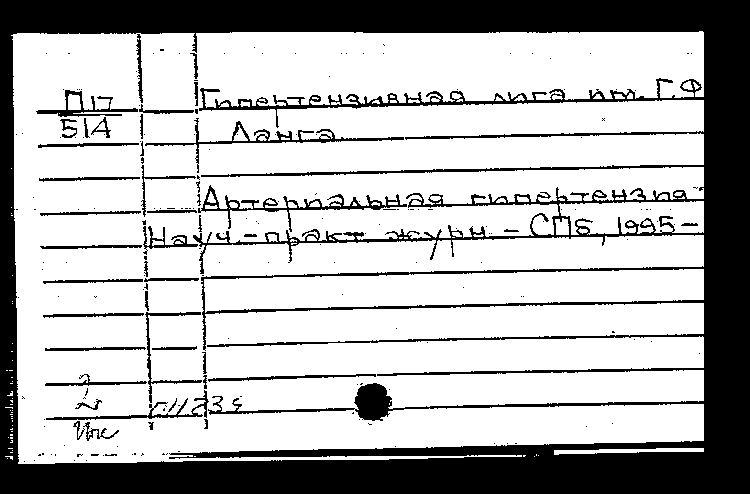 П17 Гипертензивная лига им. Г.Ф
514 Ланга.
Артериальная гипертензия
Науч.-практ журн - СПб, 1995-
2